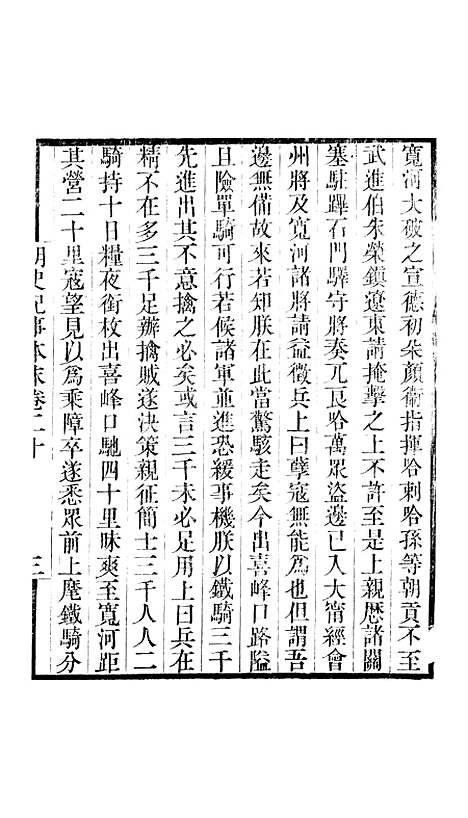 寬河大破之宣德初朵顏衞指揮哈剌哈孫等朝貢不至
武進伯朱榮鎮遼東請掩擊之上不許至是上親歷諸關
塞駐蹕石門驛守將奏兀良哈萬眾盜邊已入大甯經會
州將及寬河諸將請益徵兵上曰孽寇無能爲也但謂吾
邊無備故來若知朕在此當驚駭走矣今出喜峰口路隘
且險單騎可行若候諸軍並進恐緩事機朕以鐵騎三千
先進出其不意擒之必矣或言三千未必足用上曰兵在
精不在多三千足辦擒賊遂決策親征簡士三千人人二
騎持十日糧夜銜枚出喜峰口馳四十里昧爽至寬河距
其營二十里寇望見以爲乘障卒遂悉眾前上麾鐵騎分
明史紀事本末卷二十
三